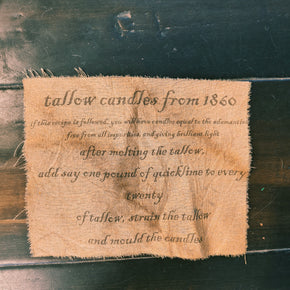 tallow candles from 1860
if this recipe is followed, you will have candles equal to the adamantine,
free from all impurities, and giving brilliant light
after melting the tallow,
add say one pound of quicklime to every
twenty
of tallow, strain the tallow
and mould the candles